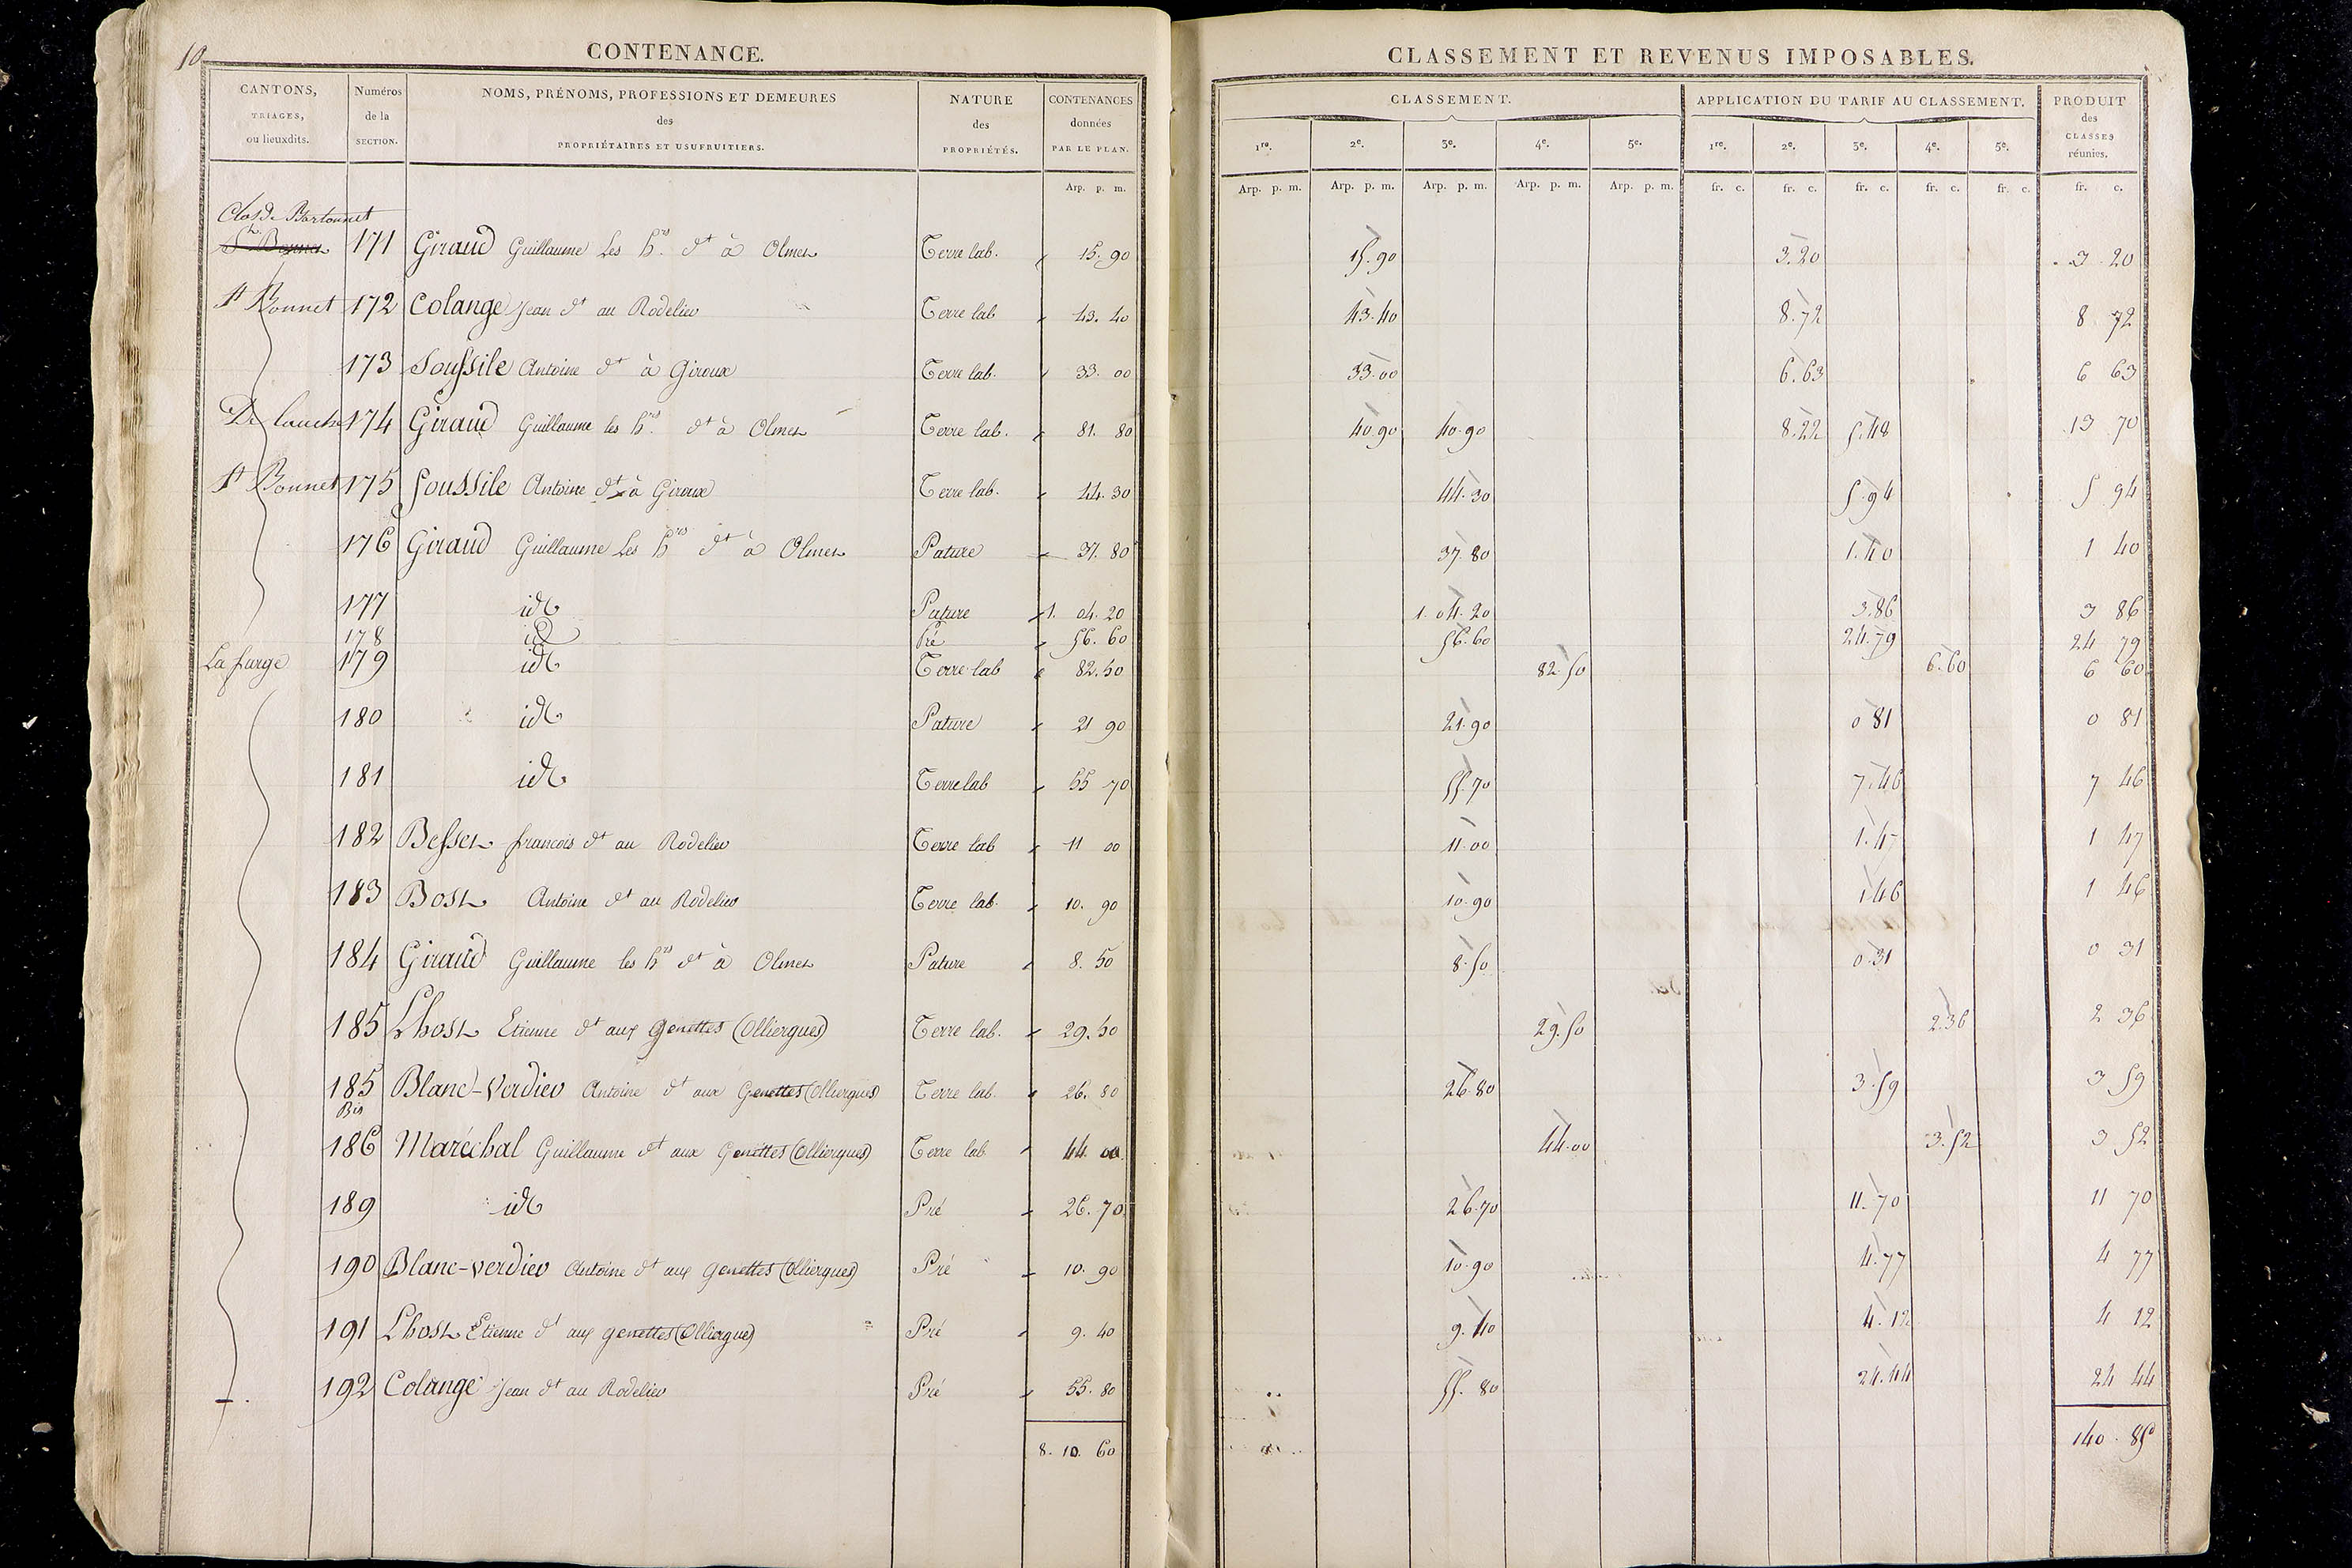 10
CONTENANCE.
CLASSEMENT ET REVENUS IMPOSABLES.
CANTONS, TRIAGES, ou lieuxdits. | Numéros de la SECTION. | NOMS, PRÉNOMS, PROFESSIONS ET DEMEURES des PROPRIÉTAIRES ET USUFRUITIERS. | NATURE des PROPRIÉTÉS. | CONTENANCES données PAR LE PLAN. | CLASSEMENT. | APPLICATION DU TARIF AU CLASSEMENT. | PRODUIT des CLASSES réunies.
1re. 2e. 3e. 4e. 5e. 1re. 2e. 3e. 4e. 5e.
Arp. p. m. Arp. p. m. Arp. p. m. Arp. p. m. Arp. p. m. Arp. p. m. fr. c. fr. c. fr. c. fr. c. fr. c. fr. c.
Clos de Bartonnet
171 Giraud Guillaume Les hrs. dt à Olmet Terre lab. 15. 90 15.90 3.20 3 20
St Bonnet 172 Colange Jean dt au Rodelier Terre lab 43. 40 43.40 8.72 8 72
173 Soussile Antoine dt à Giroux Terre lab. 33. 00 33.00 6.63 6 63
174 Giraud Guillaume les hrs. dt à Olmet Terre lab. 81. 80 40.90 40.90 8.22 5.48 13 70
St Bonnet 175 Soussile Antoine dt à Giroux Terre lab. 44. 30 44.30 5.94 5 94
176 Giraud Guillaume Les hrs dt à Olmet Pature 37. 80 37.80 1.40 1 40
177 id Pature 1. 04. 20 1.04.20 3.86 3 86
178 id Pré 56. 60 56.60 24.79 24 79
La farge 179 id Terre lab 82. 50 82.50 6.60 6 60
180 id Pature 21 90 21.90 0 81 0 81
181 id Terre lab 55 70 55.70 7.46 7 46
182 Besset francois dt au Rodelier Terre lab 11 00 11.00 1.47 1 47
183 Bost Antoine dt au Rodelier Terre lab. 10. 90 10.90 1.46 1 46
184 Giraud Guillaume les hrs dt à Olmet Pature 8. 50 8.50 0.31 0 31
185 Lhost Etienne dt aux genettes (Olliergues) Terre lab. 29. 50 29.50 2.36 2 36
185 Bis Blanc-Verdier Antoine dt aux Genettes (Olliergues) Terre lab. 26. 80 26.80 3.59 3 59
186 Maréchal Guillaume dt aux Genettes (Olliergues) Terre lab 44. 00 44.00 3.52 3 52
189 id Pré 26. 70 26.70 11.70 11 70
190 Blanc-verdier Antoine dt aux genettes (Olliergues) Pré 10. 90 10.90 4.77 4 77
191 Lhost Etienne dt aux genettes (Olliergues) Pré 9. 40 9.40 4.12 4 12
192 Colange Jean dt au Rodelier Pré 55. 80 55.80 24.44 24 44
8. 10. 60 140. 85